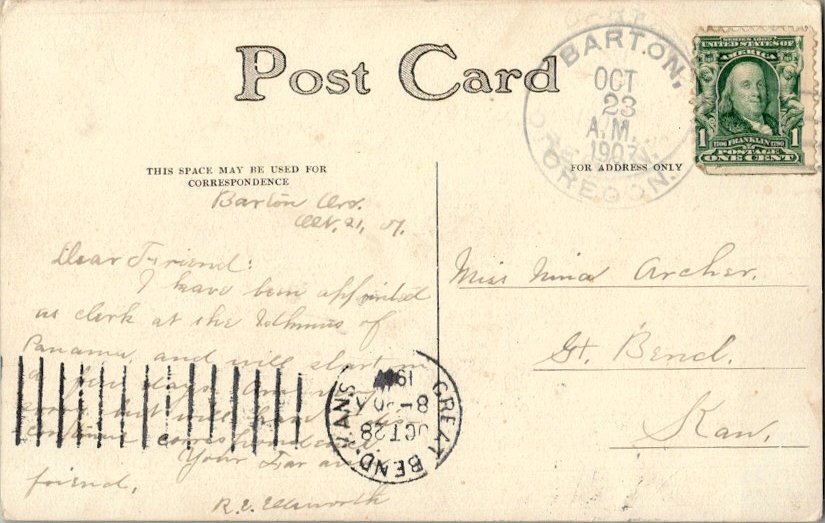 Post Card
THIS SPACE MAY BE USED FOR
CORRESPONDENCE
Barton Ore.
Oct. 21, 07.
Dear Friend:
I have been appointed
as clerk at the Isthmus of
Panama, and will start in
a few days. Am
sorry, but will have to
continue correspondence
Your Far away
friend,
R.V. Ellsworth
BARTON,
OCT
23
A.M.
1907
OREGON.
SERIES 1902
UNITED STATES OF
AMERICA
1706 FRANKLIN 1790
1 1
POSTAGE
ONE CENT
FOR ADDRESS ONLY
Miss Nina Archer.
Gt. Bend.
Kan.
GREAT BEND, KANS.
OCT 28
8-